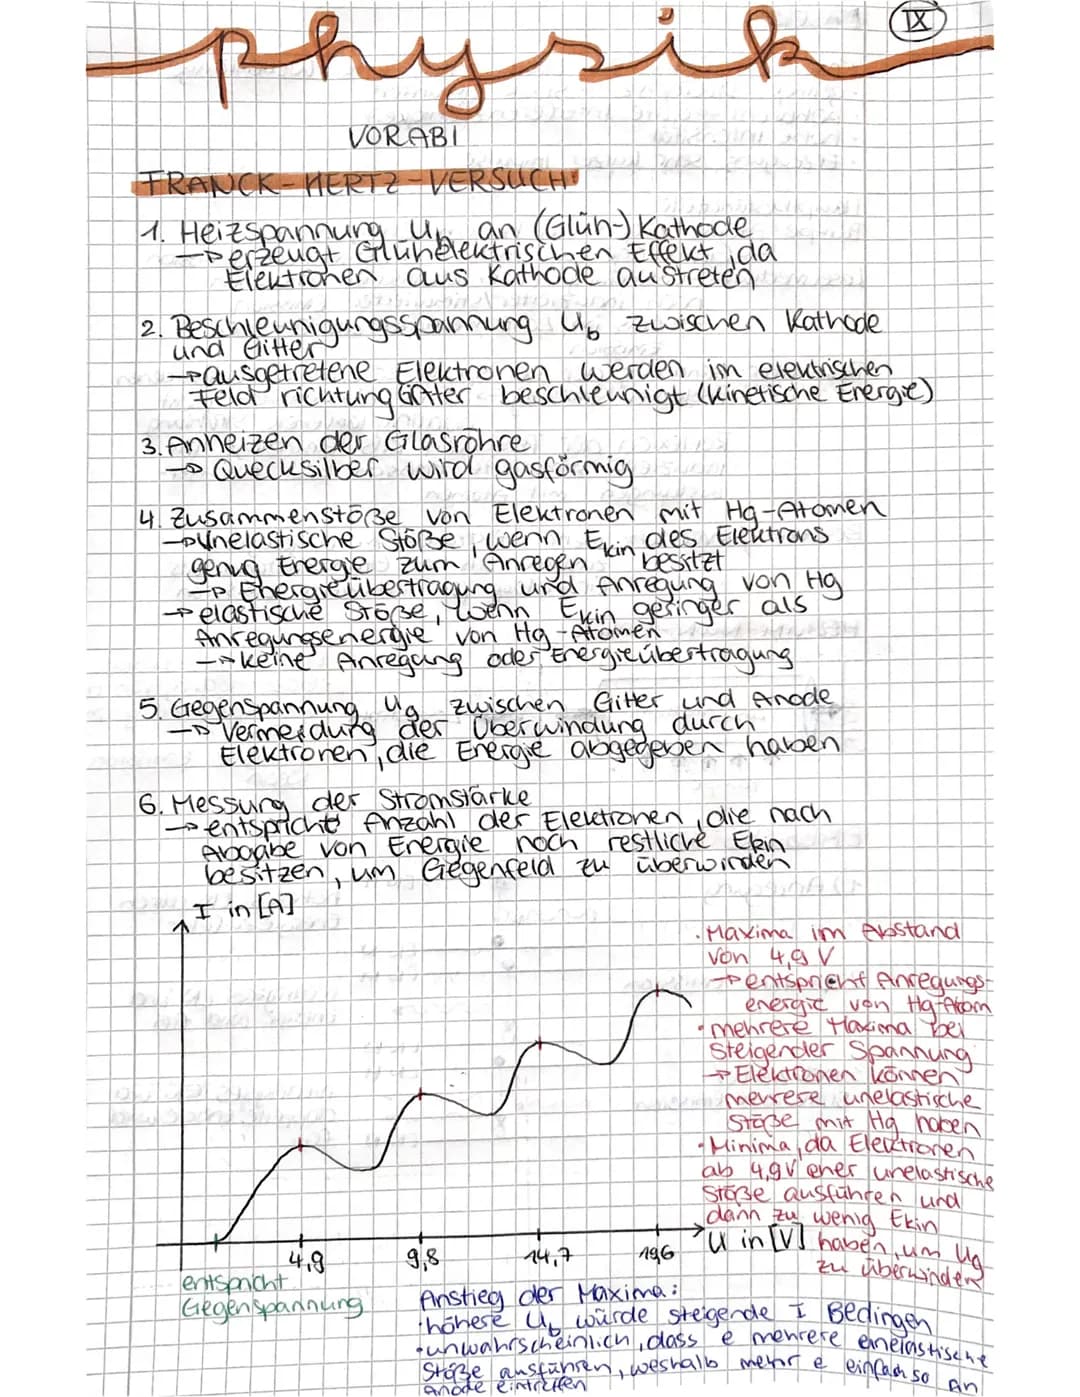 IX
physik
VORABI
FRANCK-HERTZ-VERSUCH:
1. Heizspannung Uh an (Glüh-) Kathode
→ erzeugt Glühelektrischen Effekt, da
Elektronen aus Kathode austreten
2. Beschleunigungsspannung Ub zwischen Kathode
und Gitter
→ ausgetretene Elektronen werden im elektrischen
Feld richtung Gitter beschleunigt (kinetische Energie)
3. Anheizen der Glasröhre
→ Quecksilber wird gasförmig
4. Zusammenstöße von Elektronen mit Hg-Atomen
→ unelastische Stöße, wenn Ekin des Elektrons
genug Energie zum Anregen besitzt
→ Energieübertragung und Anregung von Hg
→ elastische Stöße, wenn Ekin geringer als
Anregungsenergie von Hg-Atomen
→ keine Anregung oder Energieübertragung
5. Gegenspannung Ug zwischen Gitter und Anode
→ Vermeidung der Überwindung durch
Elektronen, die Energie abgegeben haben
6. Messung der Stromstärke
→ entspricht Anzahl der Elektronen, die nach
Abgabe von Energie noch restliche Ekin
besitzen, um Gegenfeld zu überwinden
I in [A]
· Maxima im Abstand
von 4,9 V
→ entspricht Anregungs-
energie von Hg-Atom
· mehrere Maxima bei
steigender Spannung
→ Elektronen können
mehrere unelastische
Stöße mit Hg haben
· Minima, da Elektronen
ab 4,9V eher unelastische
Stöße ausführen und
dann zu wenig Ekin
haben, um Ug
zu überwinden
U in [V]
4,9 9,8 14,7 19,6
entspricht
Gegenspannung
Anstieg der Maxima:
· höhere Ub würde steigende I Bedingen
· unwahrscheinlich, dass e mehrere unelastische
Stöße ausführen, weshalb mehr e einfach so an
Anode eintreffen